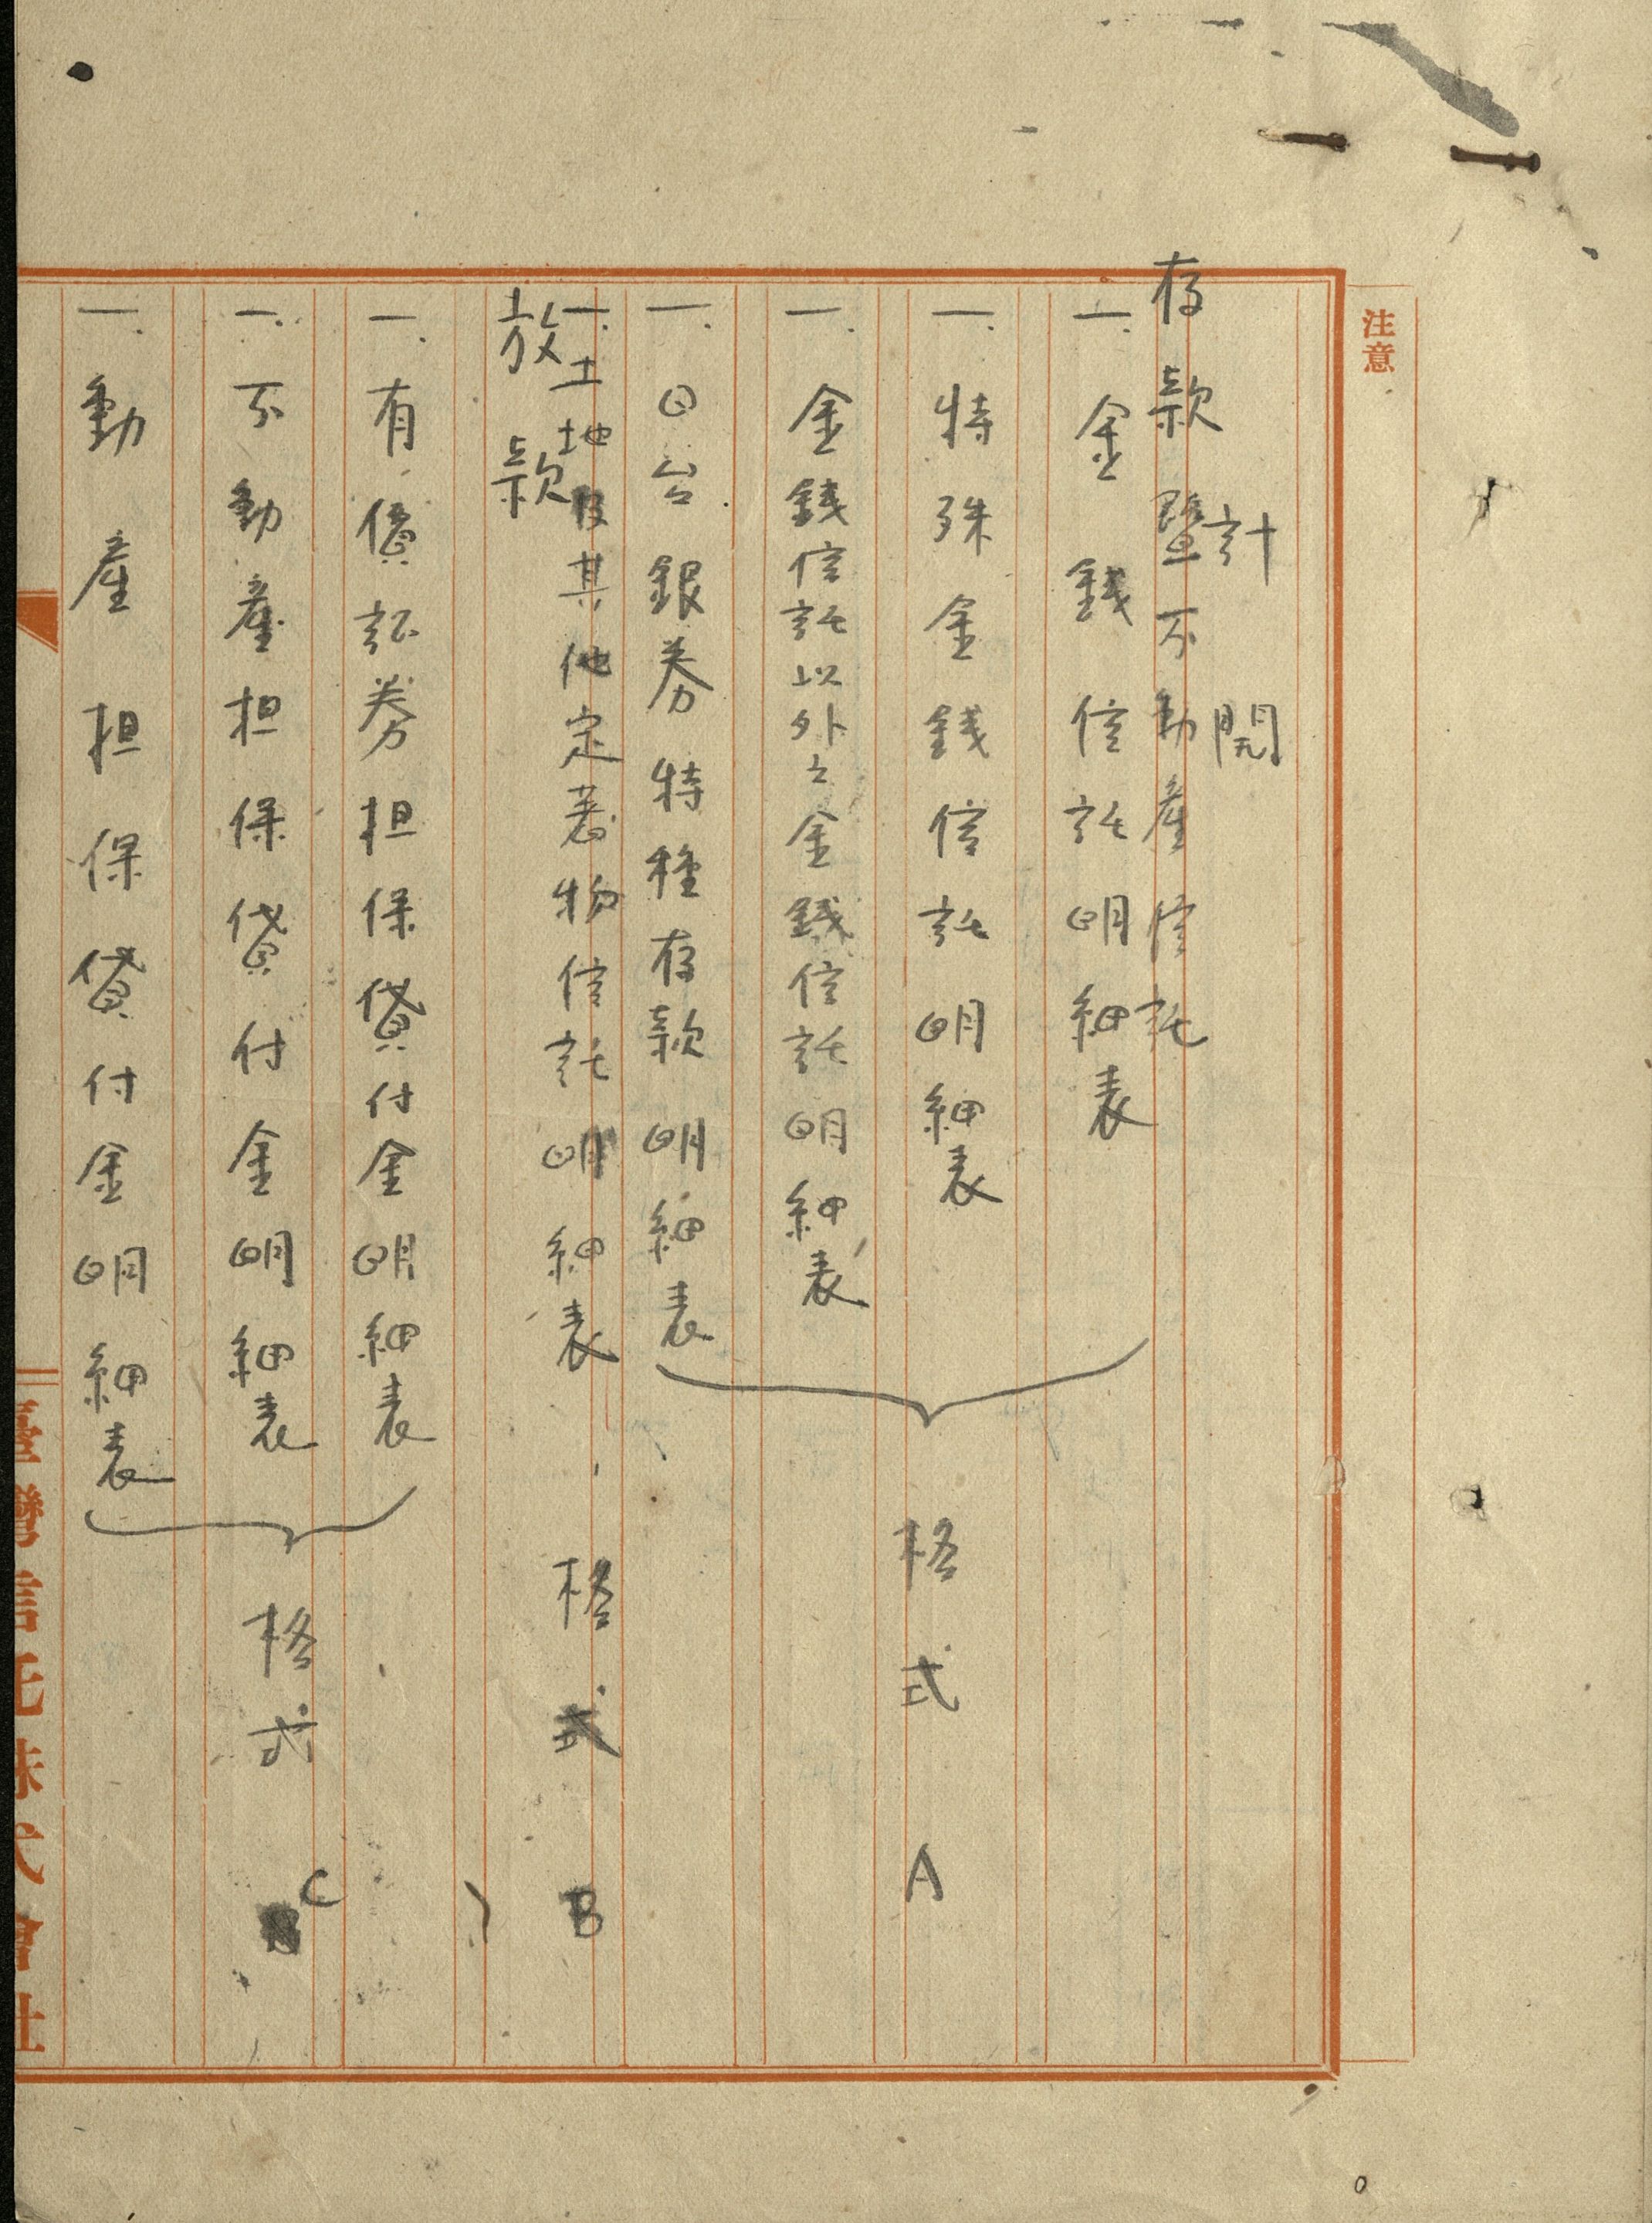 注意
計開
存款暨不動產信託
一.金錢信託明細表
一.特殊金錢信託明細表
一.金錢信託以外之金錢信託明細表
一.日台銀券特種存款明細表
格式 A
一.土地及其他定著物信託明細表
格式 B
放款
一.有價証券担保貸付金明細表
一.不動產担保貸付金明細表
一.動產担保貸付金明細表
格式 C
臺灣信託株式會社